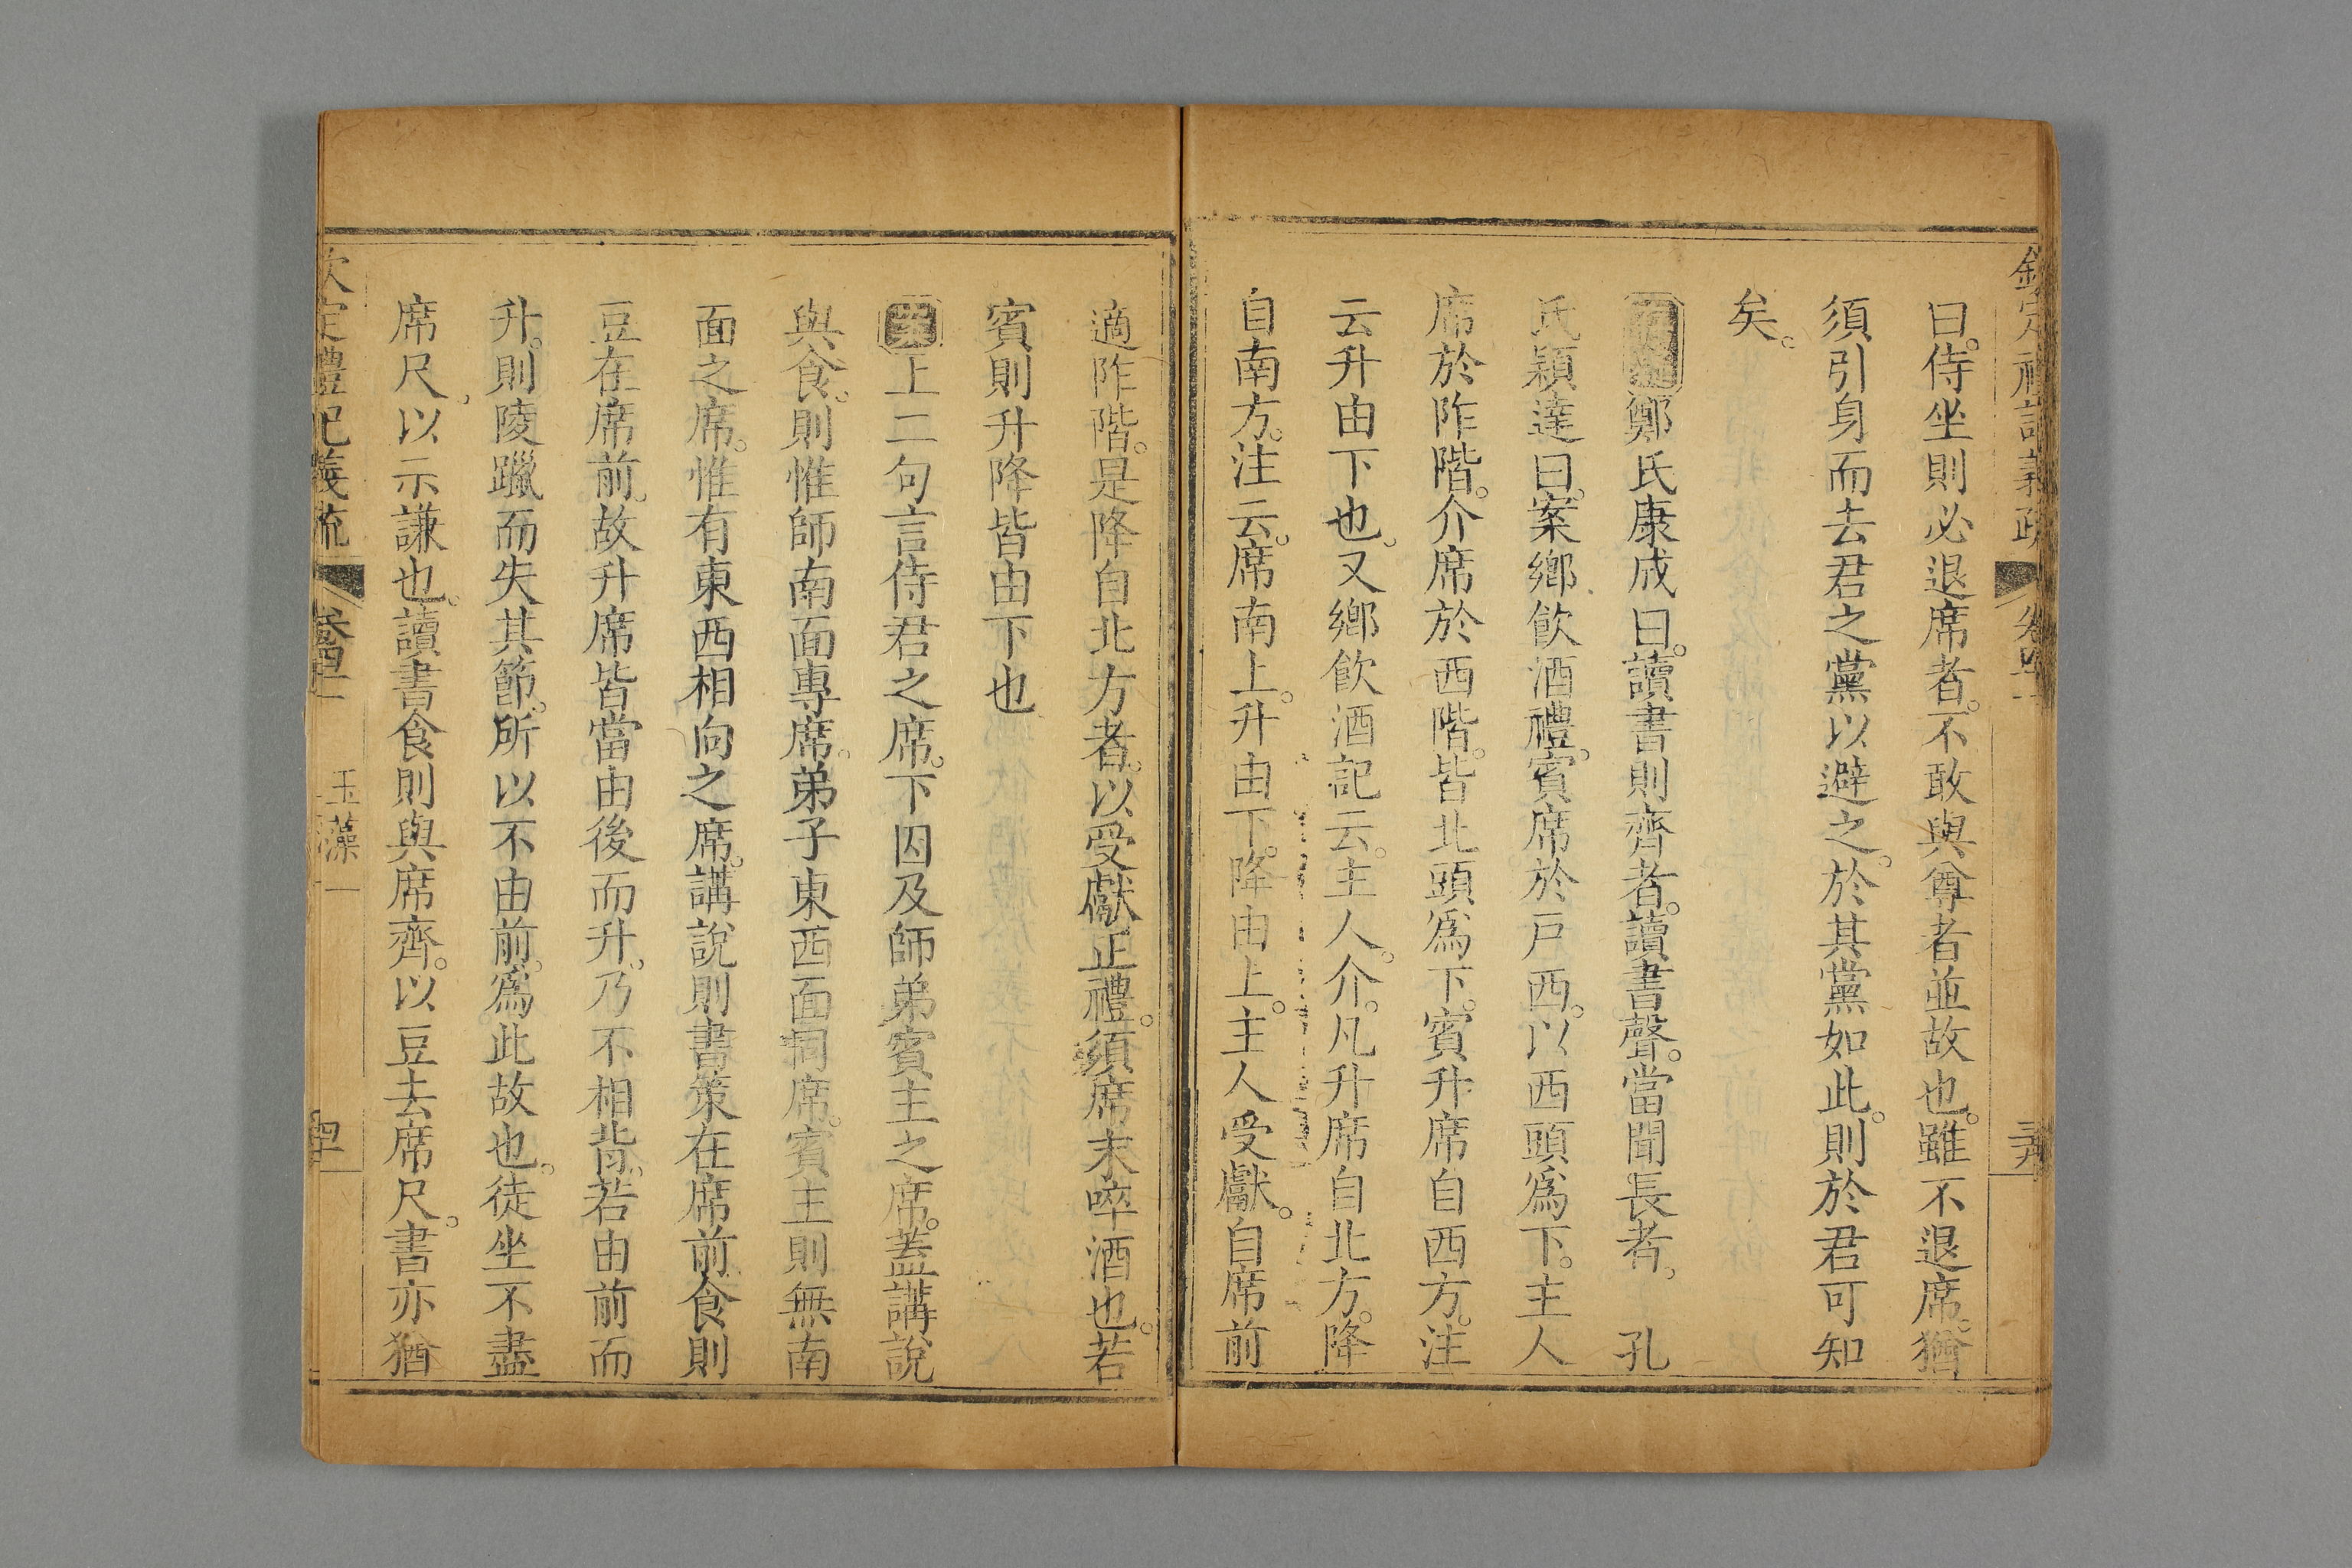 欽定禮記義疏 卷四十一 三九
曰侍坐則必退席者不敢與尊者並故也雖不退席猶
須引身而去君之黨以避之於其黨如此則於君可知
矣
鄭氏康成曰讀書則齊者讀書聲當聞長者 孔
氏穎達曰案鄉飲酒禮賓席於戶西以西頭爲下主人
席於阼階介席於西階皆北頭爲下賓升席自西方注
云升由下也又鄉飲酒記云主人介凡升席自北方降
自南方注云席南上升由下降由上主人受獻自席前
適阼階是降自北方者以受獻正禮須席末啐酒也若
賓則升降皆由下也
案上二句言侍君之席下因及師弟賓主之席蓋講說
與食則惟師南面專席弟子東西面同席賓主則無南
面之席惟有東西相向之席講說則書策在席前食則
豆在席前故升席皆當由後而升乃不相背若由前而
升則陵躐而失其節所以不由前爲此故也徒坐不盡
席尺以示謙也讀書食則與席齊以豆去席尺書亦猶
欽定禮記義疏 卷四十一 玉藻一 四十